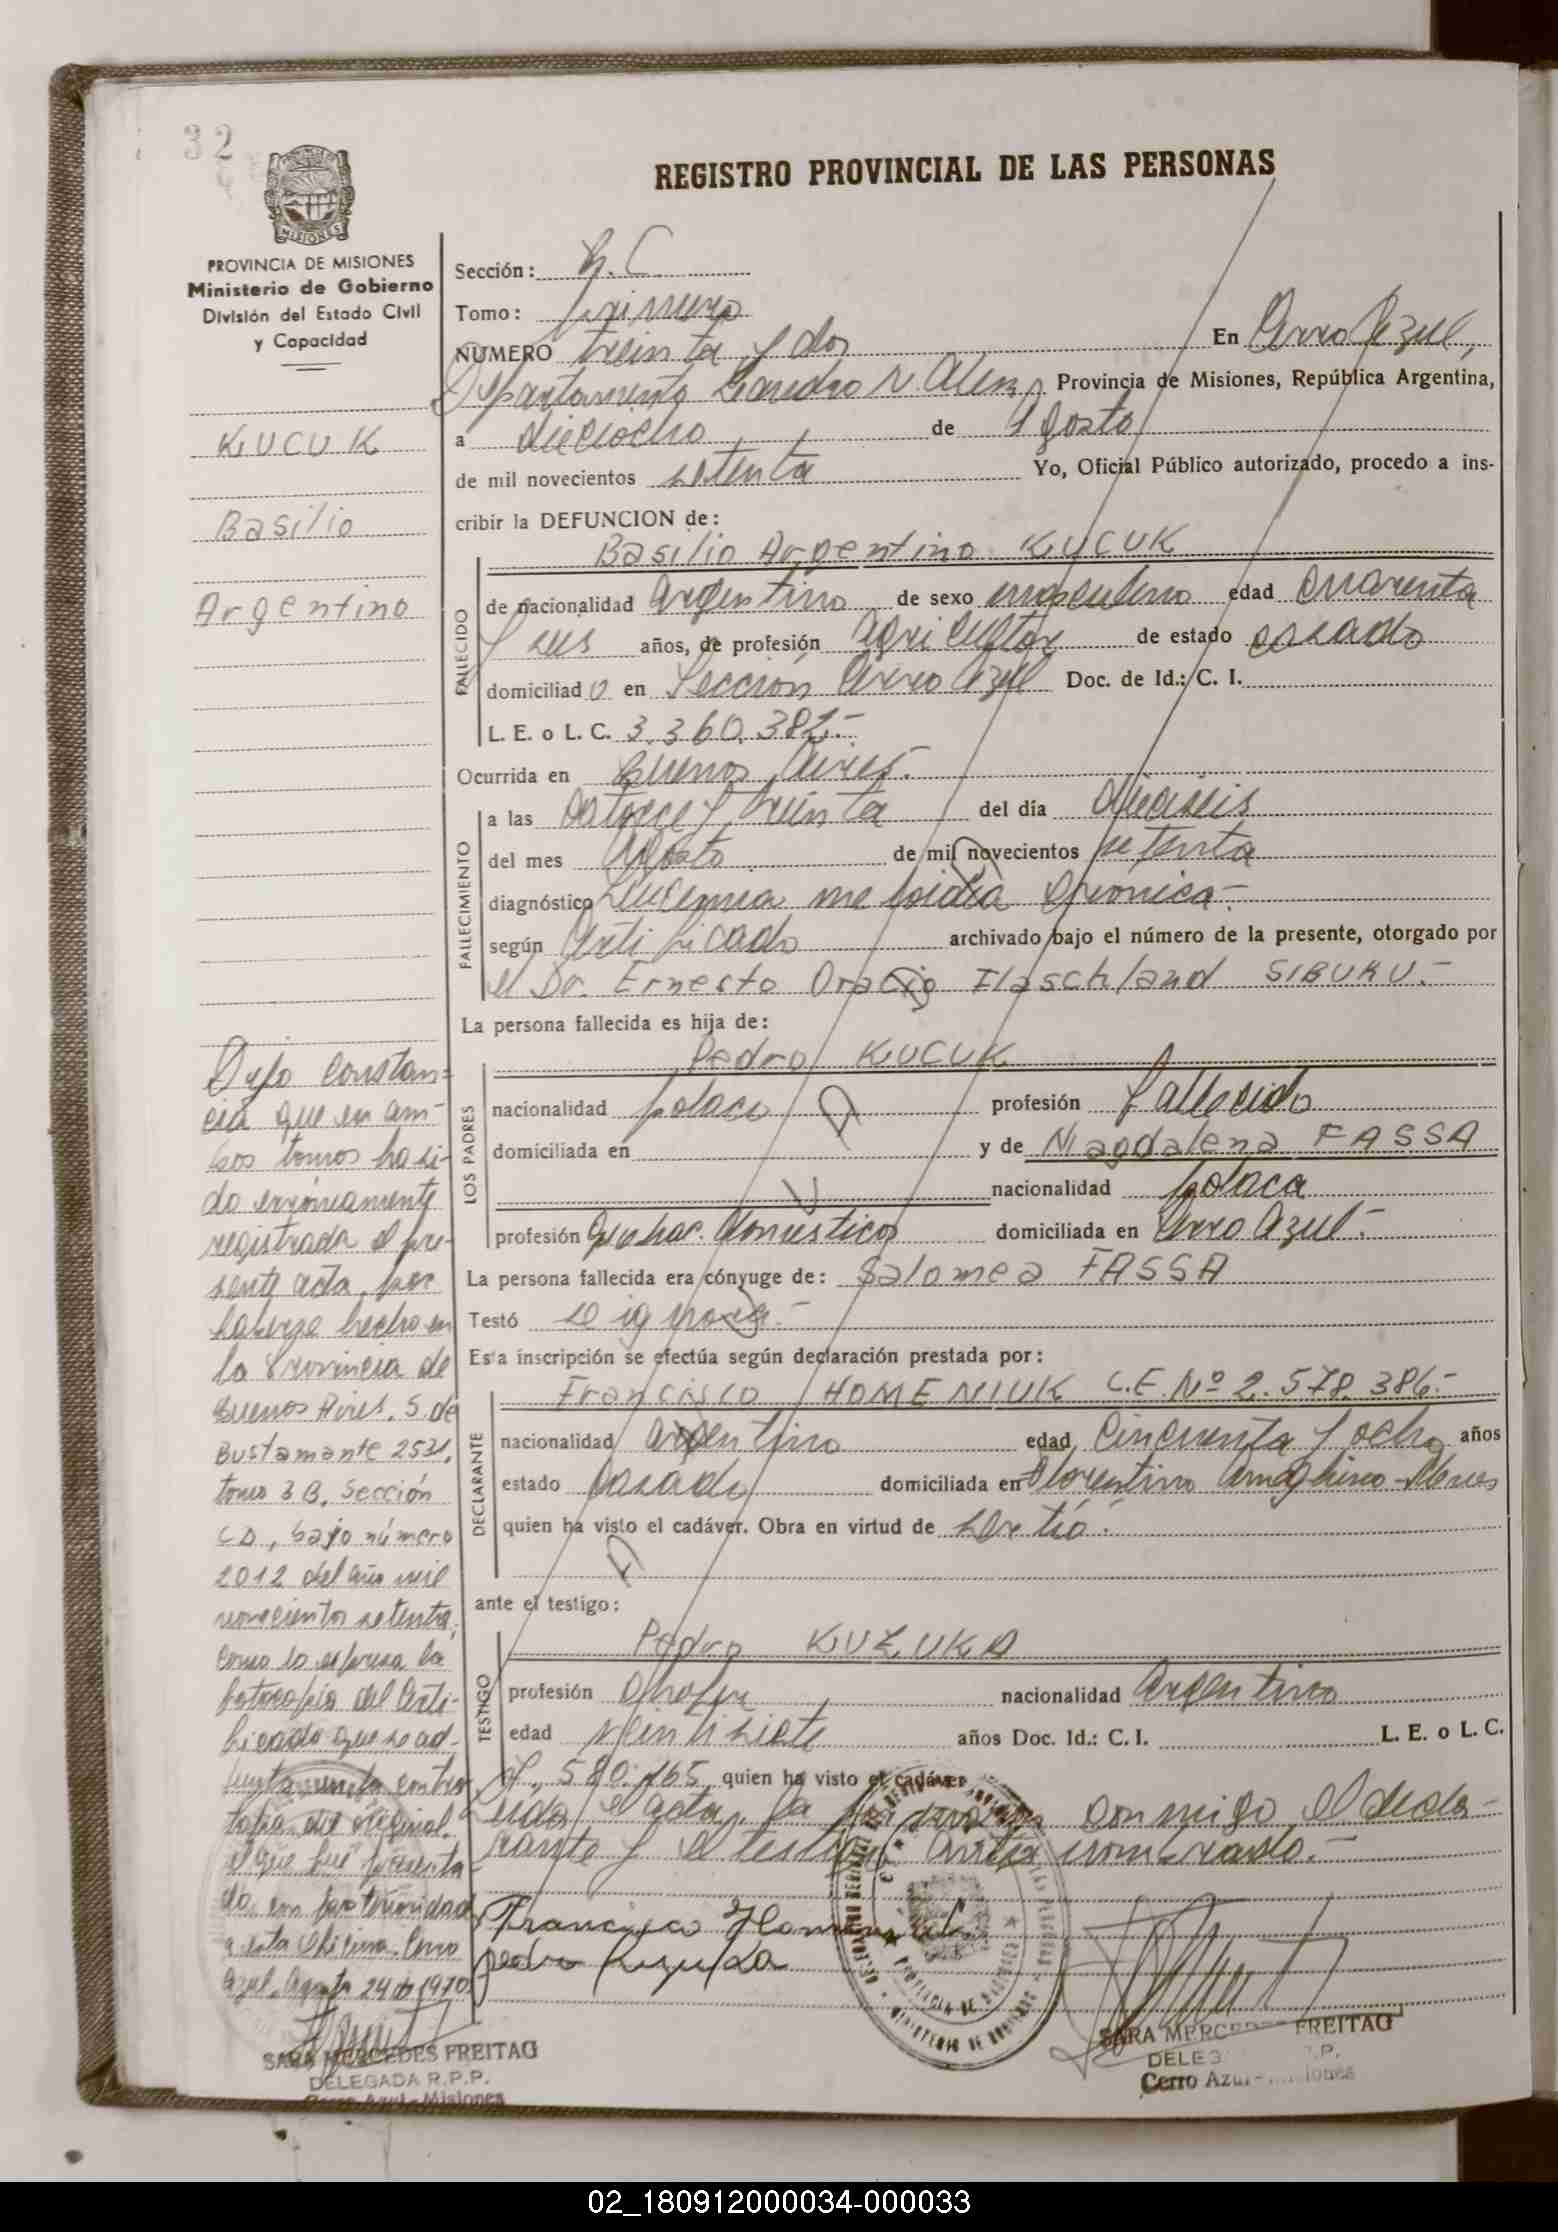 32
REGISTRO PROVINCIAL DE LAS PERSONAS
MISIONES
PROVINCIA DE MISIONES
Ministerio de Gobierno
División del Estado Civil
y Capacidad
KUCUK
Basilio
Argentino
Sección:
Tomo: primero
NUMERO treinta y dos En Cerro Azul,
Departamento Leandro N. Alem, Provincia de Misiones, República Argentina,
a dieciocho de Agosto
de mil novecientos setenta Yo, Oficial Público autorizado, procedo a ins-
cribir la DEFUNCION de:
Basilio Argentino KUCUK
FALLECIDO
de nacionalidad Argentino de sexo masculino edad cuarenta
y seis años, de profesión Agricultor de estado casado
domiciliado en Sección Cerro Azul Doc. de Id.: C. I.
L. E. o L. C. 3.360.382.-
Ocurrida en Buenos Aires.
FALLECIMIENTO
a las Catorce y treinta del día dieciseis
del mes Agosto de mil novecientos setenta
diagnóstico Leucemia meloidia cronica.-
según Certificado archivado bajo el número de la presente, otorgado por
el Dr. Ernesto Oracio Flaschland SIBURU.-
La persona fallecida es hija de:
LOS PADRES
Pedro KUCUK
nacionalidad polaco profesión fallecido
domiciliada en y de Magdalena FASSA
nacionalidad polaca
profesión quehac. domesticos domiciliada en Cerro Azul.-
La persona fallecida era cónyuge de: Salomea FASSA
Testó se ignora.-
Esta inscripción se efectúa según declaración prestada por:
DECLARANTE
Francisco HOMENIUK L.E. Nº 2.578.386.-
nacionalidad argentino edad Cincuenta y ocho años
estado Casado domiciliada en Florentino Ameghino-Mnes
quien ha visto el cadáver. Obra en virtud de
ante el testigo:
TESTIGO
Pedro KUZUKA
profesión Chofer nacionalidad Argentino
edad veintisiete años Doc. Id.: C. I. L. E. o L. C.
580.165 quien ha visto el cadáver
Leída el acta, la conmigo el decla-
rante y el testigo nombrado.-
Francisco Homeniuk
Pedro Kuzuka
SARA MERCEDES FREITAG
Cerro Azul - Misiones
Dejo constan-
cia que en am-
bos tomos ha si-
do erróneamente
registrada el pre-
sente acta, por
haberse hecho en
la Provincia de
Buenos Aires. S. de
Bustamante 2531,
tomo 3 B. Sección
CD, bajo número
2012 del año mil
novecientos setenta,
como lo expresa la
fotocopia del Certi-
ficado que se ad-
junta
del original,
el que fué presenta-
do con posterioridad
a esta Oficina. Cerro
Azul, Agosto 24 de 1970
SARA MERCEDES FREITAG
DELEGADA R.P.P.
Cerro Azul - Misiones
02_180912000034-000033